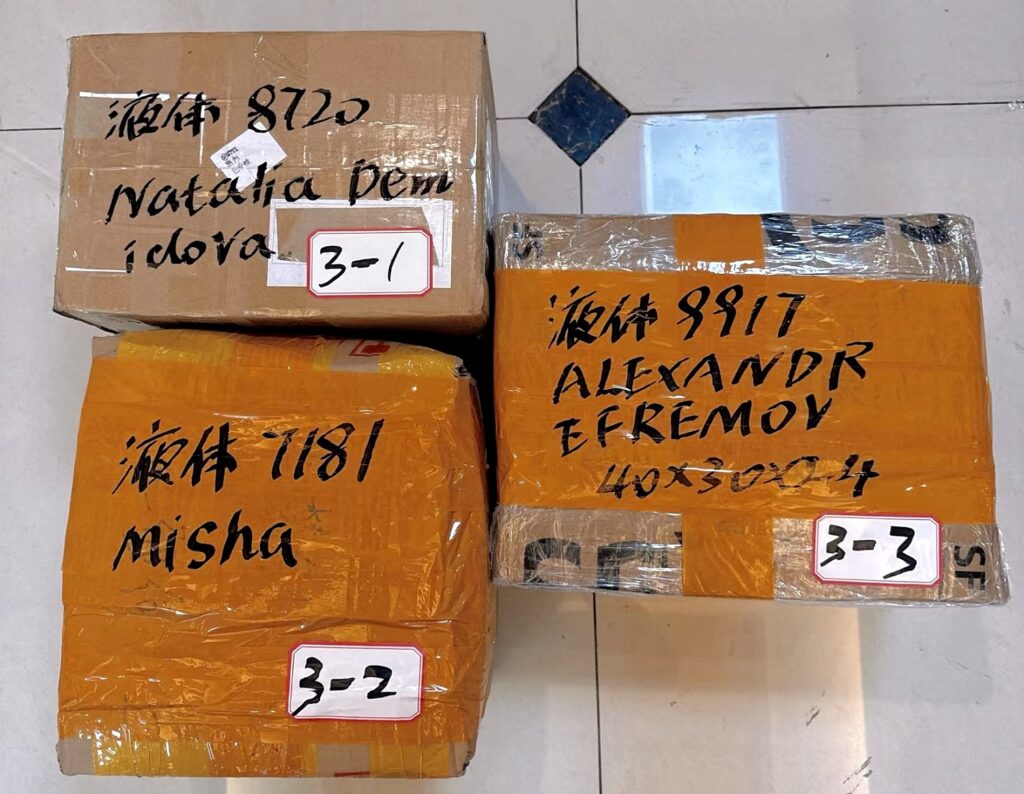 液体 8720
Natalia Dem
idova
3-1
液体 7181
Misha
3-2
液体 9917
ALEXANDR
EFREMOV
40×30×24
3-3
SF
SF